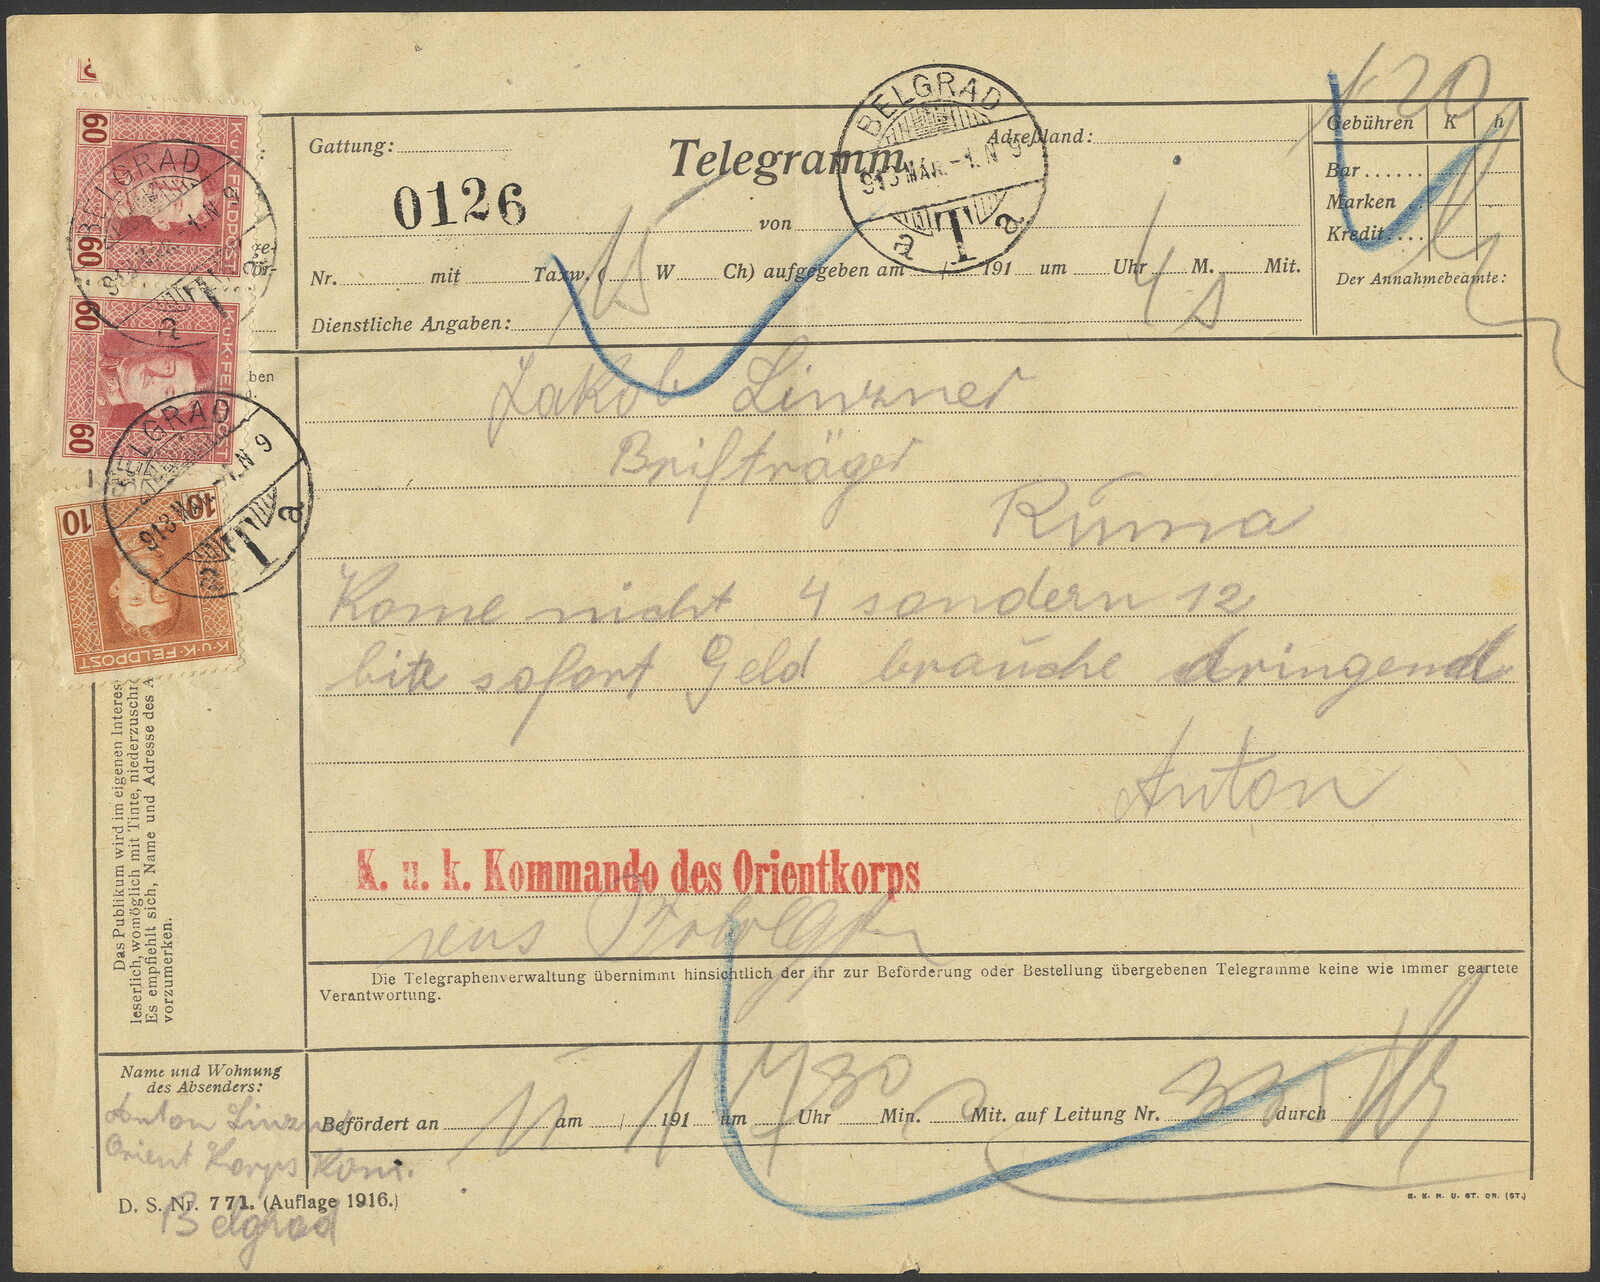 120
Gattung:
Telegramm
Adreßland:
Gebühren K h
0126
von
Bar
Marken
Kredit
Nr. mit Taxw. ( W Ch) aufgegeben am / 191 um Uhr M. Mit.
15
Der Annahmebeamte:
Dienstliche Angaben:
BELGRAD
913 MÄR.-1.N 9
1
a a
BELGRAD
1.N 9
1
a a
BELGRAD
913
1.N 9
1
a
60
60
K.u.K.FELDPOST
60
60
K.u.K.FELDPOST
10
10
K.u.K.FELDPOST
ben
Jakob Linzner
Brifträger
Ruma
Kome nicht 4 sondern 12
bite sofort Geld brauche dringend
Anton
K. u. k. Kommando des Orientkorps
Das Publikum wird im eigenen Interes
leserlich, womöglich mit Tinte, niederzuschr
Es empfiehlt sich, Name und Adresse des A
vorzumerken.
Die Telegraphenverwaltung übernimmt hinsichtlich der ihr zur Beförderung oder Bestellung übergebenen Telegramme keine wie immer geartete
Verantwortung.
Name und Wohnung
des Absenders:
Anton Linzner
Orient Korps Kom.
Belgrad
Befördert an am / 191 um Uhr Min. Mit. auf Leitung Nr. durch
30
D. S. Nr. 771. (Auflage 1916.)
K. K. H. U. ST. DR. (ST.)